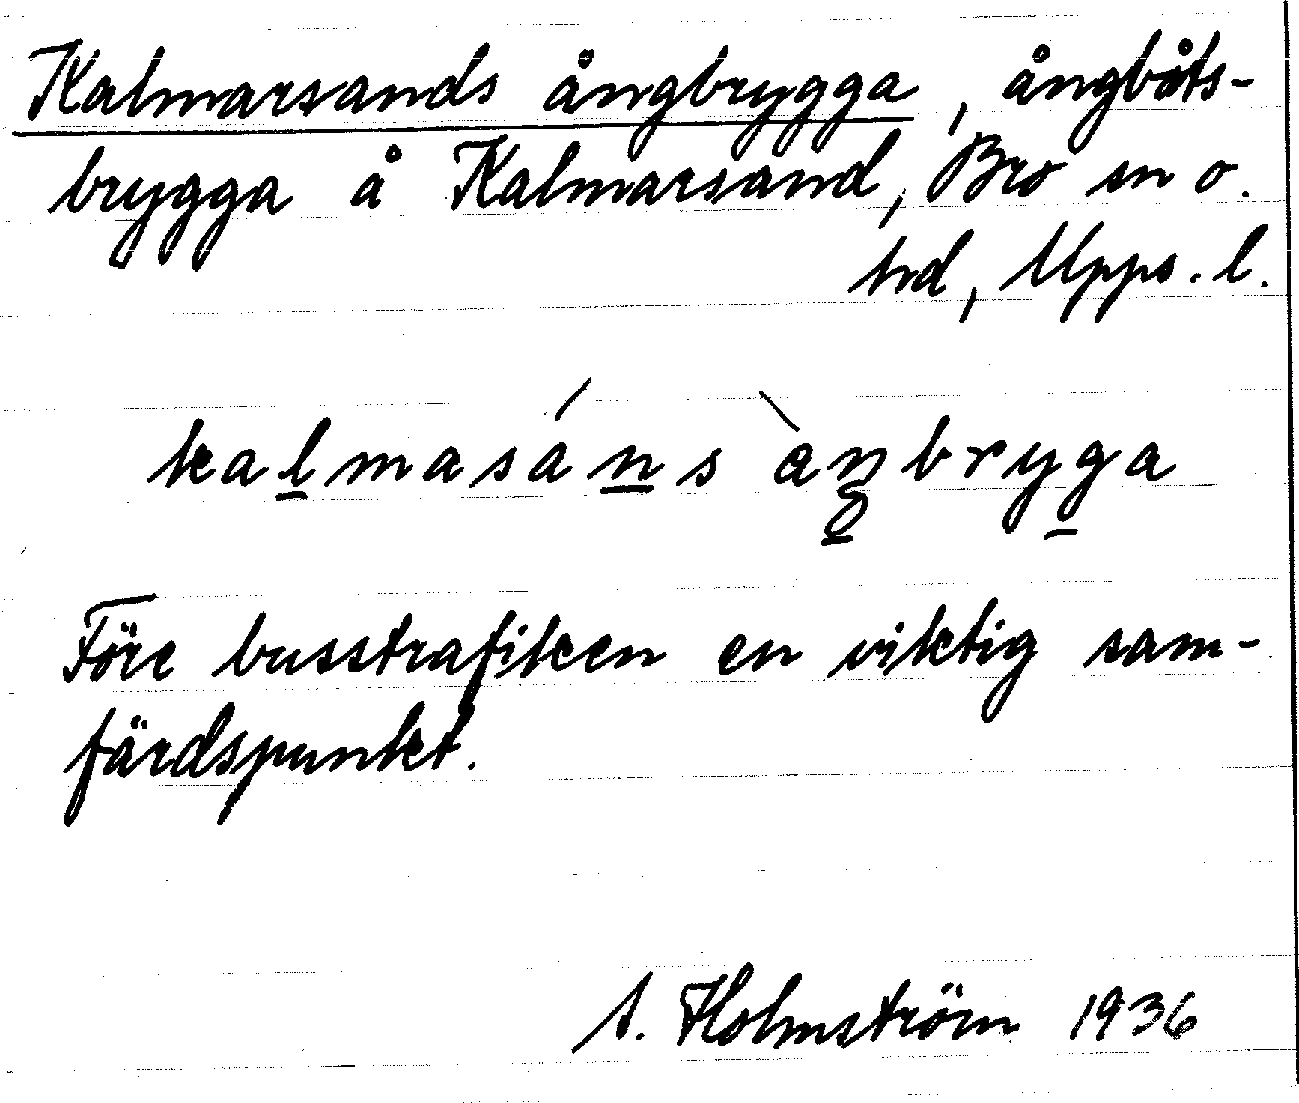 Kalmarsands ångbrygga, ångbåts-
brygga å Kalmarsand, Bro sn o.
hd, Upps. l.
kalmasáns àŋbryga
Före busstrafiken en viktig sam-
färdspunkt.
A. Holmström 1936